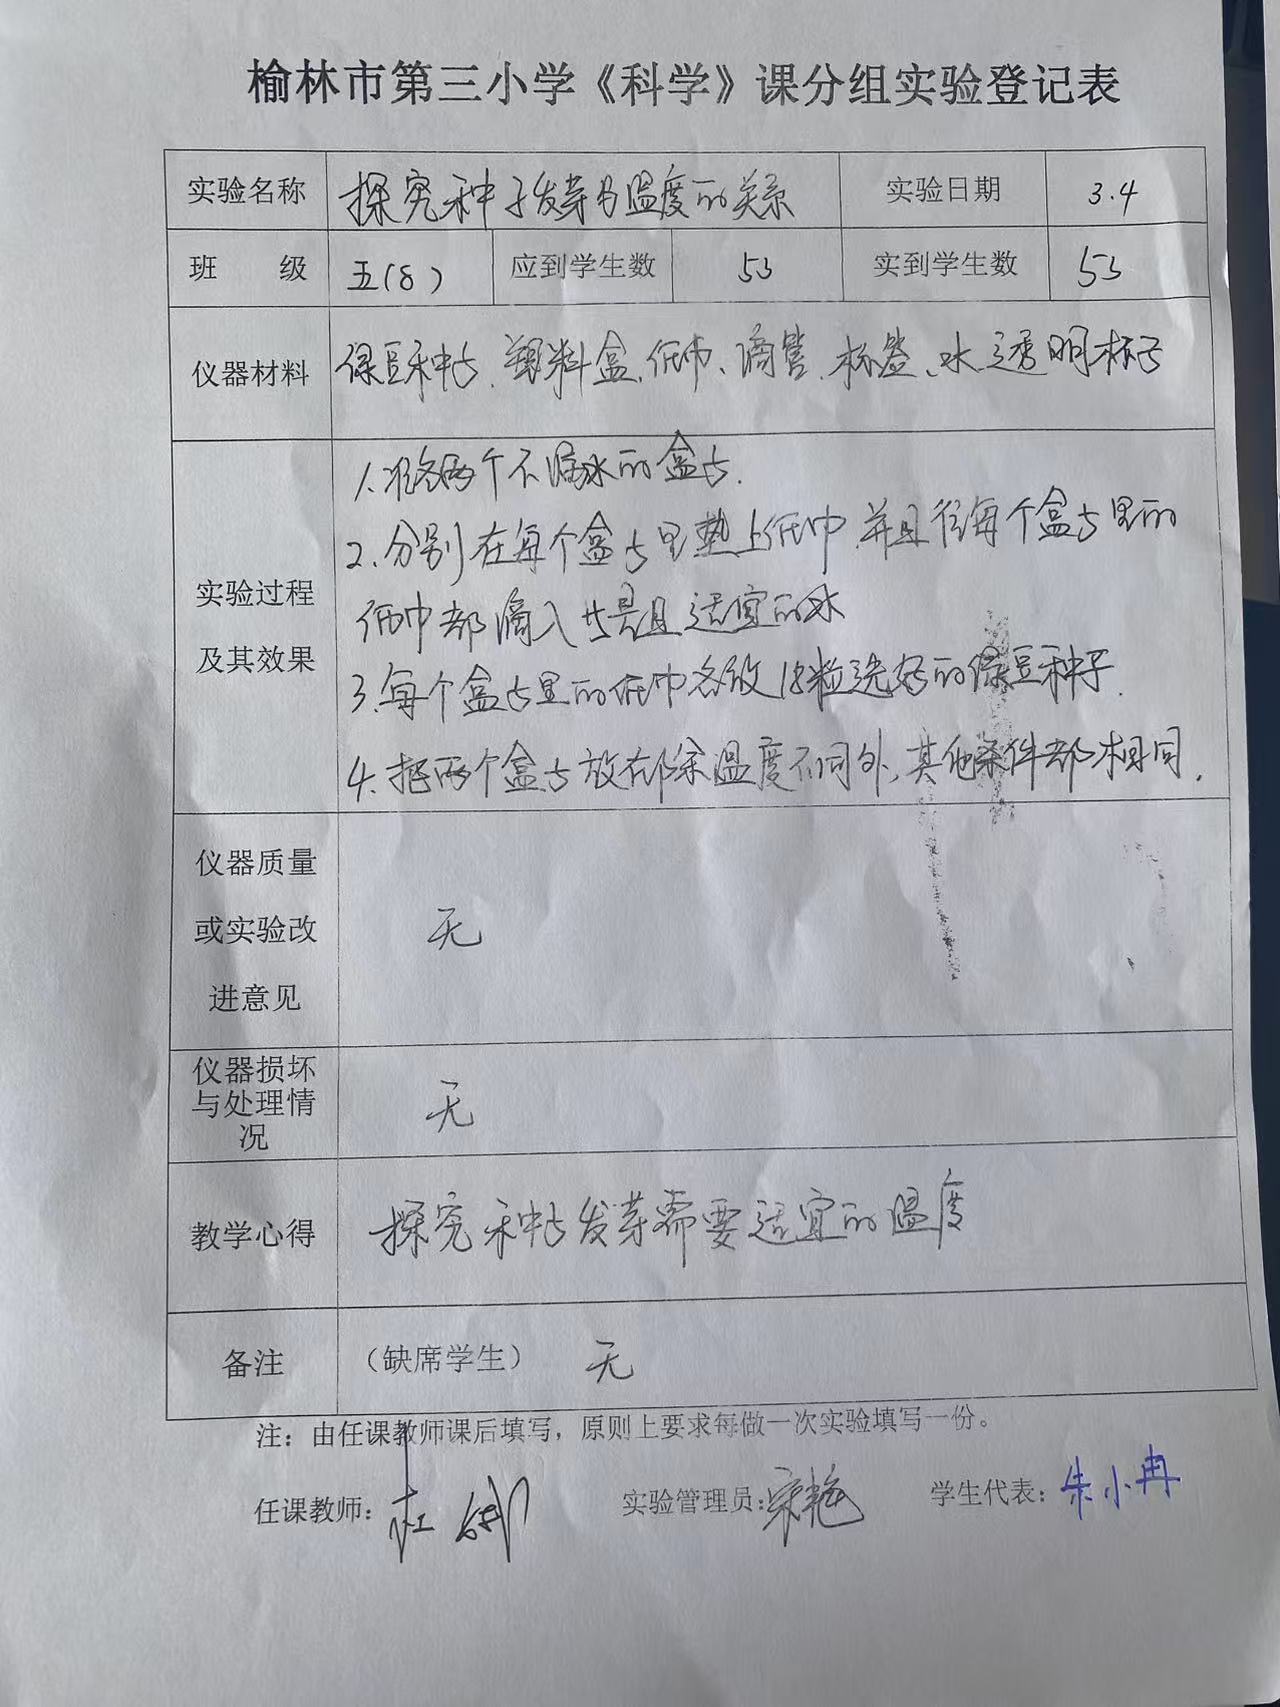 榆林市第三小学《科学》课分组实验登记表
实验名称 探究种子发芽与温度的关系 实验日期 3.4
班 级 五(8) 应到学生数 53 实到学生数 53
仪器材料 绿豆种子、塑料盒、纸巾、滴管、标签、水、透明杯子
实验过程及其效果
1.准备两个不漏水的盒子.
2.分别在每个盒子里垫上纸巾,并且往每个盒子里的
纸巾都滴入等量且适宜的水
3.每个盒子里的纸巾各放 粒选好的绿豆种子.
4.把两个盒子放在除温度不同外,其他条件都相同.
仪器质量
或实验改
进意见
无
仪器损坏
与处理情
况
无
教学心得 探究种子发芽需要适宜的温度
备注 (缺席学生) 无
注:由任课教师课后填写,原则上要求每做一次实验填写一份。
任课教师: 杜 实验管理员:宋艳 学生代表:朱小冉